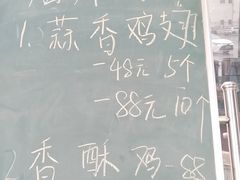 1.蒜香鸡翅
-48元 5个
-88元 10个
2.香酥鸡-88